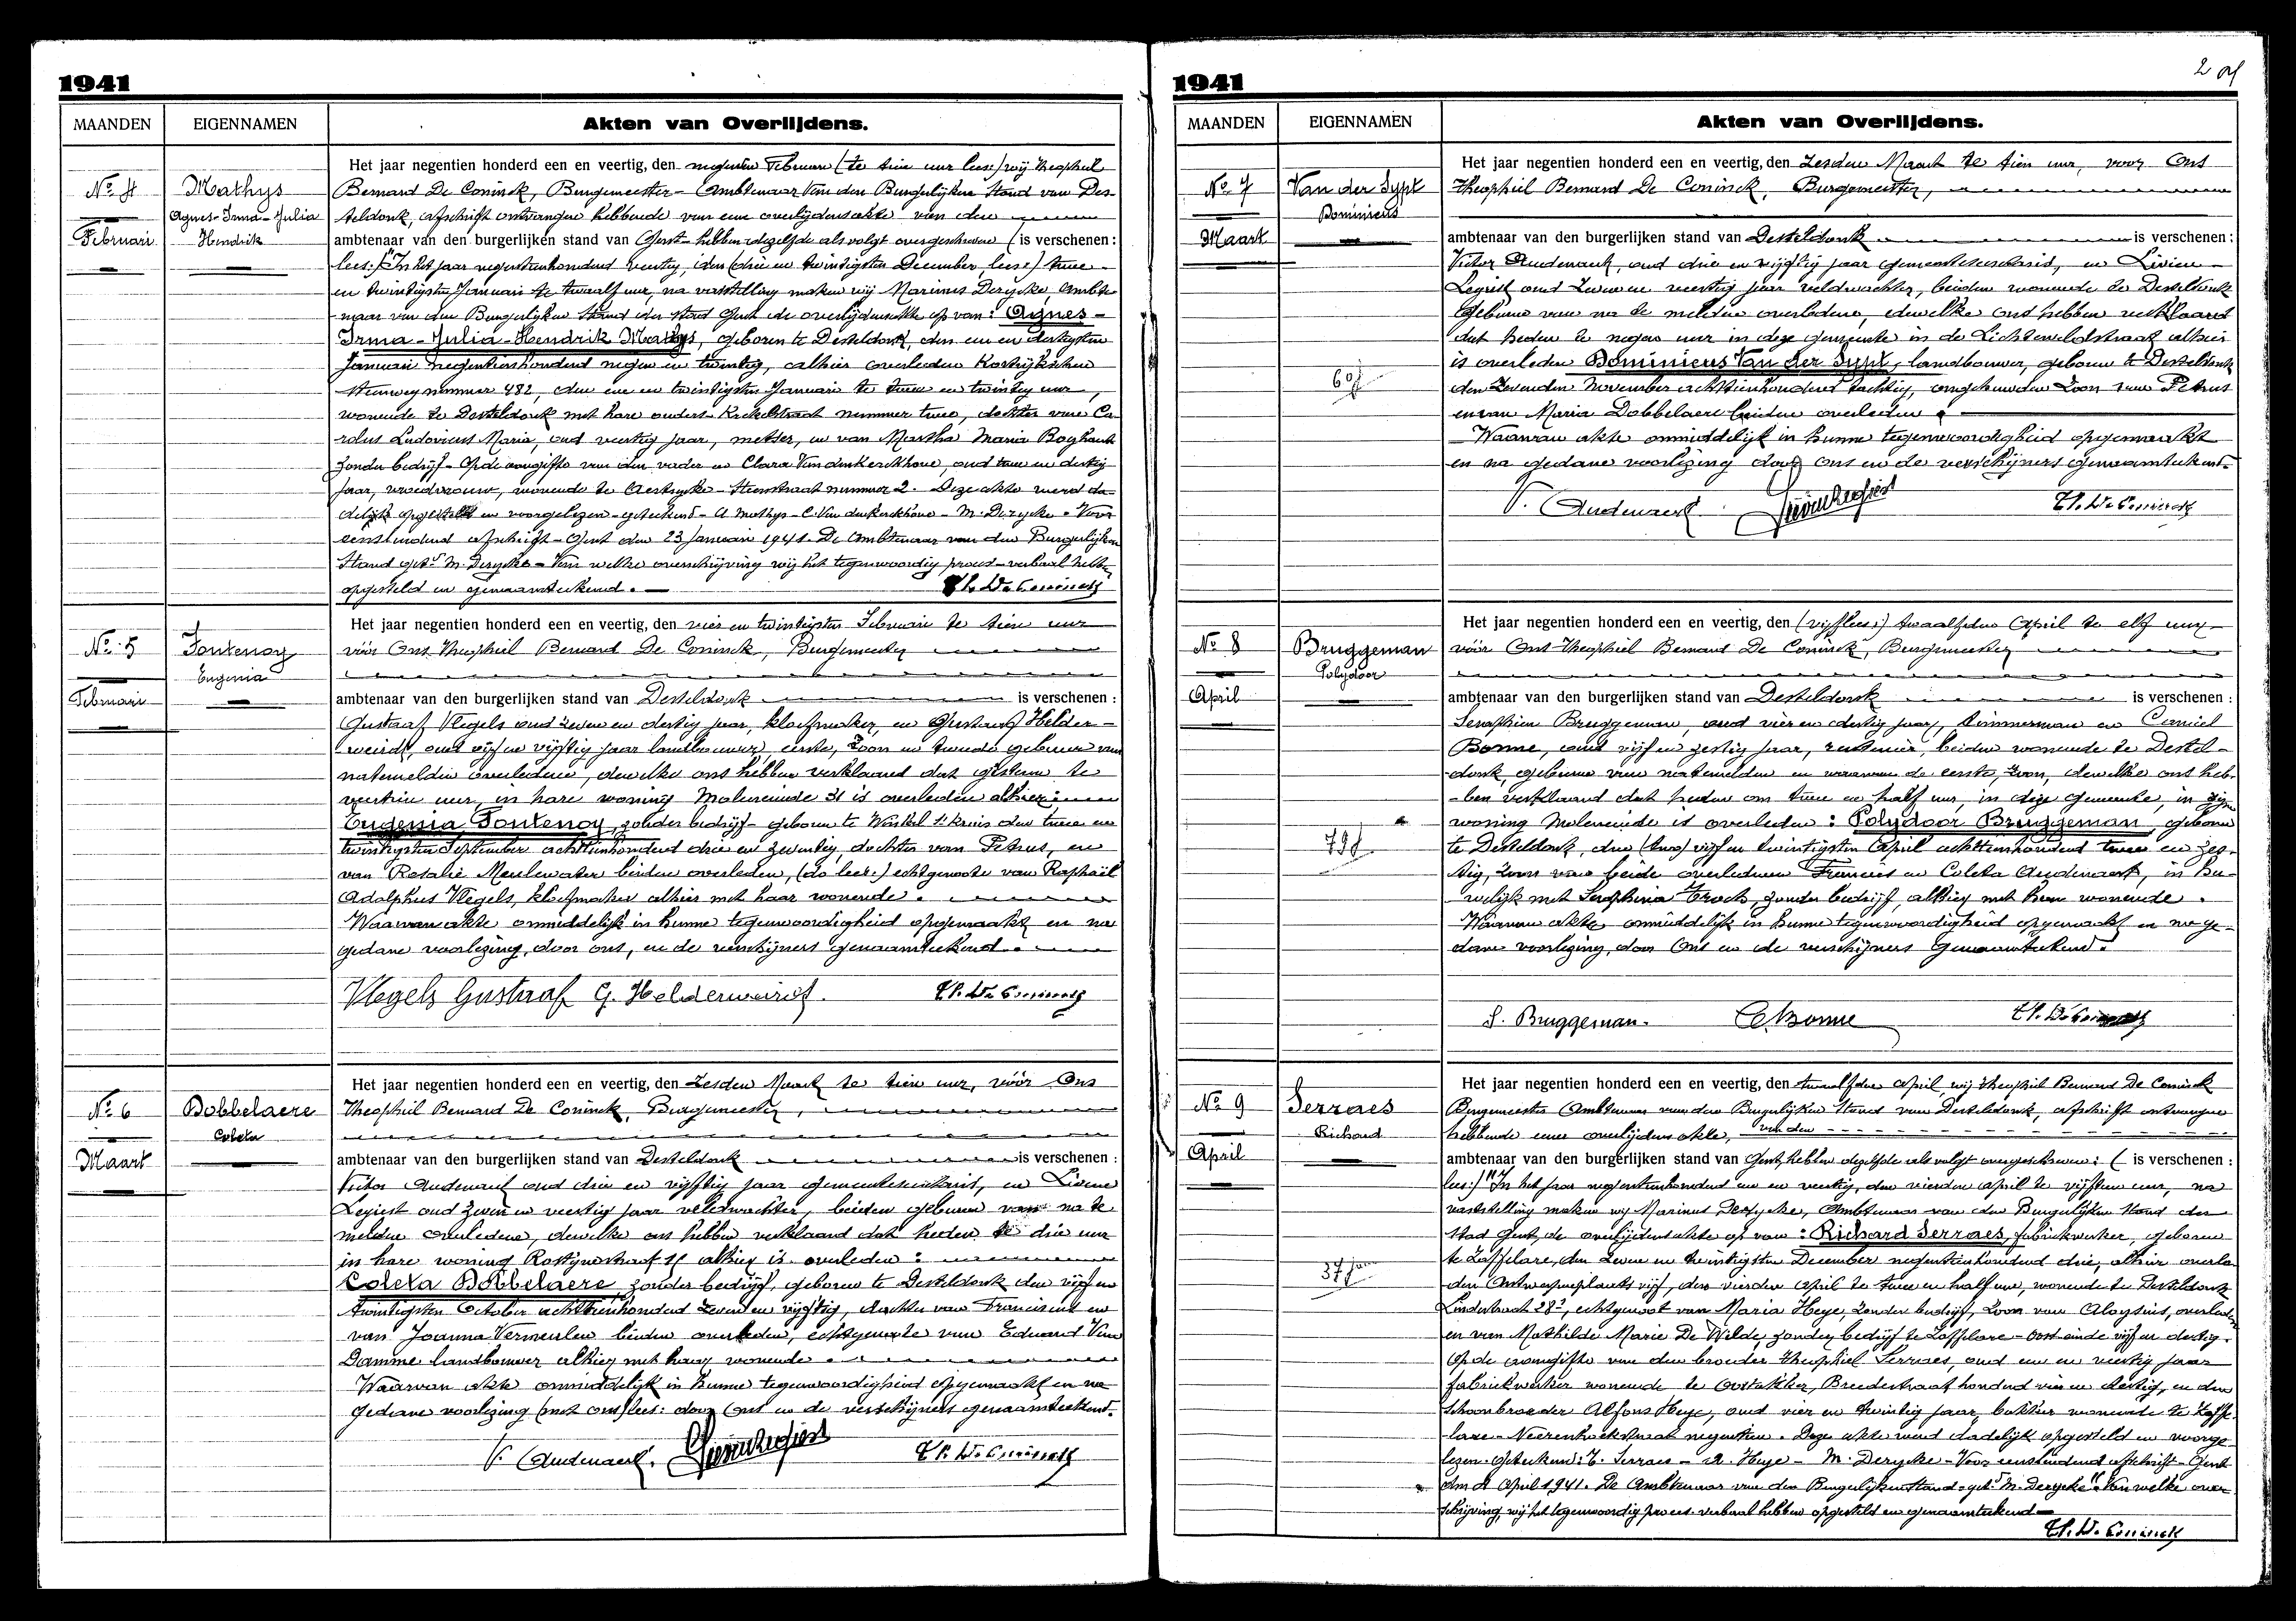 1941
MAANDEN EIGENNAMEN Akten van Overlijdens.
No 4
Februari
Mathys
Agnes-Irma-Julia
Hendrik
Het jaar negentien honderd een en veertig, den negenden Februari (te tien uur lees:) wij Theophiel
Bernard De Coninck, Burgemeester - Ambtenaar van den Burgerlijken Stand van Des-
teldonk, afschrift ontvangen hebbende van eene overlijdensakte van den
ambtenaar van den burgerlijken stand van Gent - hebben dezelfde als volgt overgeschreven (is verschenen:
lees:) "In het jaar negentienhonderd veertig, den (drie en twintigsten December, lees:) twee
en twintigsten Januari te twaalf uur, na vaststelling maken wij Marinus Derycke, Ambte
naar van den Burgerlijken Stand der stad Gent de overlijdensakte op van: Agnes -
Irma - Julia - Hendrik Mathys, geboren te Desteldonk, den een en dertigsten
Januari negentienhonderd negen en twintig, alhier overleden Kortrijkschen
steenweg nummer 482, den een en twintigsten Januari te twee en twintig uur,
wonende te Desteldonk met hare ouders Kachelstraat nummer twee, dochter van Ca-
rolus Ludovicus Maria, oud veertig jaar, metser, en van Martha Maria Boghaert
zonder bedrijf - Op de aangifte van den vader en Clara Vandenkerckhove, oud twee en dertig
jaar, vroedvrouw, wonende te Aertrycke - Steenstraat nummer 2. Deze akte werd da-
delijk opgesteld en voorgelezen - geteekend - A. Mathys - C. Vandenkerckhove - M. Derycke - Voor
eensluidend afschrift - Gent den 23 Januari 1941. De Ambtenaar van den Burgerlijken
Stand get. M. Derycke - Van welke overschrijving wij het tegenwoordig proces-verbaal hebben
opgesteld en genaamteekend.
Th. De Coninck
No 5
Februari
Fontenoy
Eugenia
Het jaar negentien honderd een en veertig, den vier en twintigsten Februari te tien uur
vóór Ons Theophiel Bernard De Coninck, Burgemeester
ambtenaar van den burgerlijken stand van Desteldonk is verschenen:
Gustaaf Vlegels oud zeven en dertig jaar, kloefmaker, en Gustaaf Helder-
weirdt, oud vijf en vijftig jaar landbouwer, eerste, zoon en tweede gebuur van
natemelden overledene, dewelke ons hebben verklaard dat gisteren te
veertien uur, in hare woning Moleneinde 31 is overleden alhier:
Eugenia Fontenoy, zonder bedrijf - geboren te Winkel St Kruis den twee en
twintigsten September achttienhonderd drie en zeventig, dochter van Petrus, en
van Rosalie Meulewater beiden overleden, (do lees:) echtgenoote van Raphaël
Adolphus Vlegels, kloefmaker alhier met haar wonende.
Waarvan akte onmiddelijk in hunne tegenwoordigheid opgemaakt en na
gedane voorlezing, door ons, en de verschijners genaamteekend.
Vlegels Gustaaf G. Helderweirdt. Th. De Coninck
No 6
Maart
Dobbelaere
Coleta
Het jaar negentien honderd een en veertig, den zesden Maart te tien uur, vóór Ons
Theophiel Bernard De Coninck, Burgemeester,
ambtenaar van den burgerlijken stand van Desteldonk is verschenen:
Victor Audenaert oud drie en vijftig jaar gemeentesecretaris, en Livien
Legiest oud zeven en veertig jaar veldwachter, beiden geburen van na te
melden overledene, dewelke ons hebben verklaard dat heden te drie uur
in hare woning Rostijnestraat 15 alhier is overleden:
Coleta Dobbelaere, zonder bedrijf, geboren te Desteldonk den vijf en
twintigsten October achttienhonderd zeven en vijftig, dochter van Franciscus en
van Joanna Vermeulen beiden overleden, echtgenoote van Eduard Van
Damme landbouwer alhier met haar wonende.
Waarvan akte onmiddelijk in hunne tegenwoordigheid opgemaakt en na
gedane voorlezing (met ons) lees: door Ons en de verschijners genaamteekend.
V. Audenaert. Livien Legiest Th. De Coninck
1941
MAANDEN EIGENNAMEN Akten van Overlijdens.
No 7
Maart
Van der Sypt
Dominicus
60 j
Het jaar negentien honderd een en veertig, den zesden Maart te tien uur, voor Ons
Theophiel Bernard De Coninck, Burgemeester,
ambtenaar van den burgerlijken stand van Desteldonk is verschenen:
Victor Audenaert, oud drie en vijftig jaar gemeentesecretaris, en Livien
Legiest oud zeven en veertig jaar veldwachter, beiden wonende te Desteldonk
geburen van na te melden overledene, dewelke ons hebben verklaard
dat heden te negen uur in deze gemeente in de Lichtenveldstraat alhier
is overleden Dominicus Van der Sypt, landbouwer, geboren te Desteldonk
den zevenden November achttienhonderd tachtig, ongehuwden zoon van Petrus
en van Maria Dobbelaere beiden overleden.
Waarvan akte onmiddelijk in hunne tegenwoordigheid opgemaakt
en na gedane voorlezing door ons en de verschijners genaamteekend.
V. Audenaert. Livien Legiest Th. De Coninck
No 8
April
Bruggeman
Polydoor
79 j
Het jaar negentien honderd een en veertig, den (vijf lees:) twaalfden April te elf uur
vóór Ons Theophiel Bernard De Coninck, Burgemeester
ambtenaar van den burgerlijken stand van Desteldonk is verschenen:
Seraphien Bruggeman, oud vier en dertig jaar, timmerman en Camiel
Bonne, oud vijf en zestig jaar, rentenier, beiden wonende te Destel-
donk, geburen van natemelden en waarvan de eerste zoon, dewelke ons heb-
-ben verklaard dat heden om twee en half uur, in deze gemeente, in zijne
woning Moleneinde is overleden: Polydoor Bruggeman geboren
te Desteldonk, den (twee) vijf en twintigsten April achttienhonderd twee en zes-
tig, zoon van beide overledenen Francies en Coleta Audenaert, in hu-
welijk met Seraphina Troch, zonder bedrijf, alhier met hem wonende.
Waarvan akte onmiddelijk in hunne tegenwoordigheid opgemaakt en na ge-
dane voorlezing, door Ons en de verschijners genaamteekend.
S. Bruggeman. C. Bonne Th. De Coninck
No 9
April
Serraes
Richard
37 jaar
Het jaar negentien honderd een en veertig, den twaalfden April wij Theophiel Bernard De Coninck
Burgemeester Ambtenaar van den Burgerlijken Stand van Desteldonk, afschrift ontvangen
hebbende eener overlijdensakte, van den
ambtenaar van den burgerlijken stand van Gent, hebben dezelfde als volgt overgeschreven: ( is verschenen:
lees:) "In het jaar negentienhonderd een en veertig, den vierden April te vijftien uur, na
vaststelling maken wij Marinus Derycke, Ambtenaar van den Burgerlijken Stand der
Stad Gent, de overlijdensakte op van: Richard Serraes, fabriekwerker, geboren
te Zaffelare, den zeven en twintigsten December negentienhonderd drie, alhier overle-
den Antwerpenplaats vijf, den vierden April te twee en half uur, wonende te Desteldonk
Lindestraat 28², echtgenoot van Maria Heye, zonder bedrijf, zoon van Aloysius, overleden
en van Mathilde Marie De Wilde, zonder bedrijf te Zaffelare - Oosteinde vijf en dertig.
Op de aangifte van den broeder Theophiel Serraes, oud een en veertig jaar
fabriekwerker wonende te Oostakker, Breedestraat honderd vier en dertig, en den
schoonbroeder Alfons Heye, oud vier en twintig jaar, bakker wonende te Zaffe-
lare - Neerenhoekstraat negentien. Deze akte werd dadelijk opgesteld en voorge-
lezen. Geteekend: T. Serraes - A. Heye - M. Derycke - Voor eensluidend afschrift - Gent
den 4 April 1941. De Ambtenaar van den Burgerlijken Stand - get. M. Derycke". Van welke over-
schrijving, wij het tegenwoordig proces-verbaal hebben opgesteld en genaamteekend
Th. De Coninck